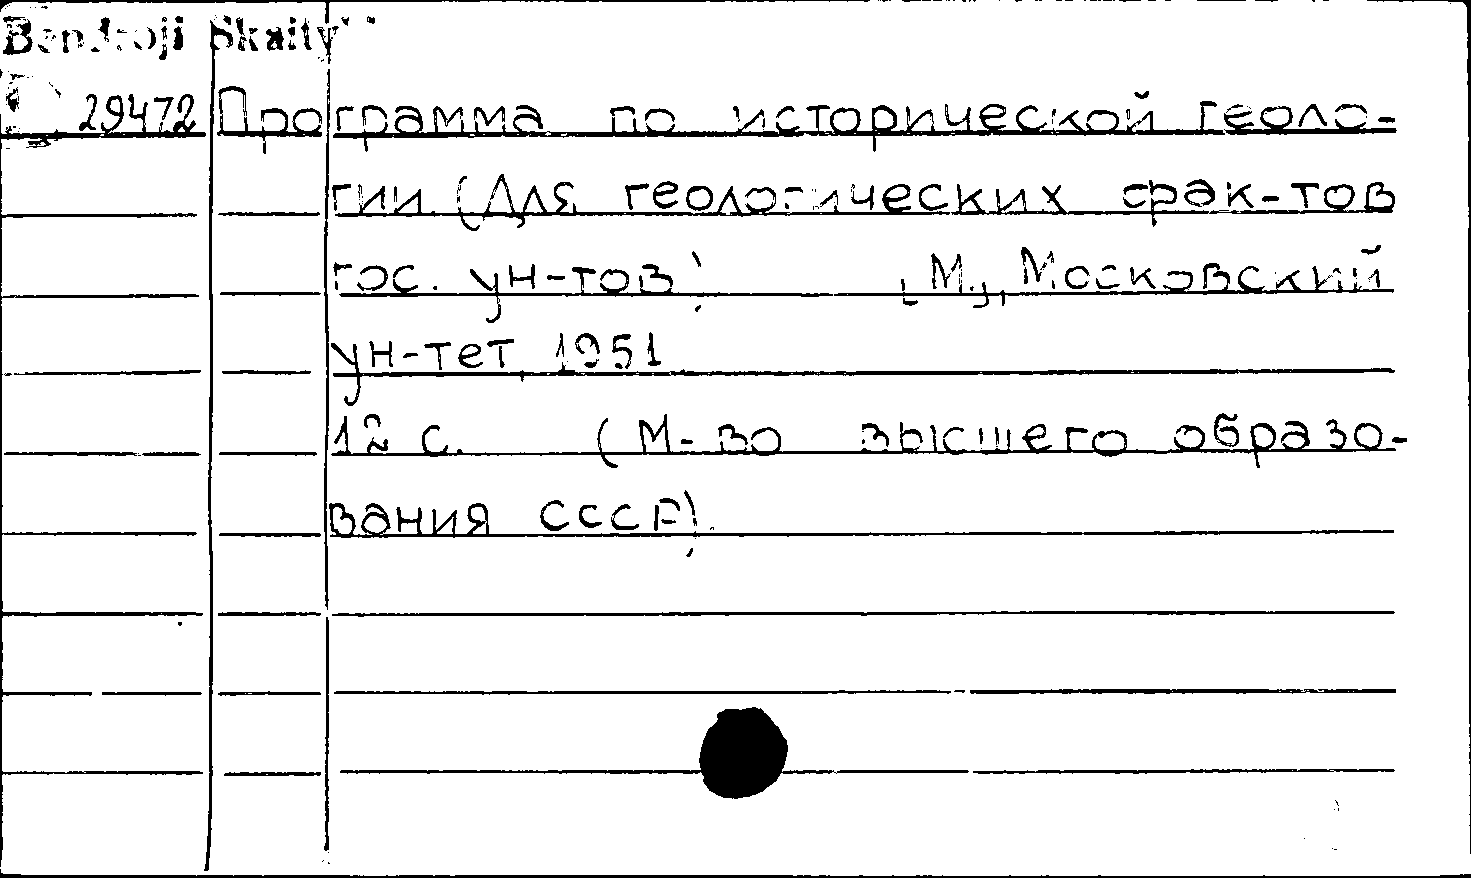 Bendroji Skaity
29472 Программа по исторической геоло-
гии. (Для геологических фак-тов
гос. ун-тов). [М.], Московский
ун-тет, 1951
12 с. (М-во высшего образо-
вания СССР).